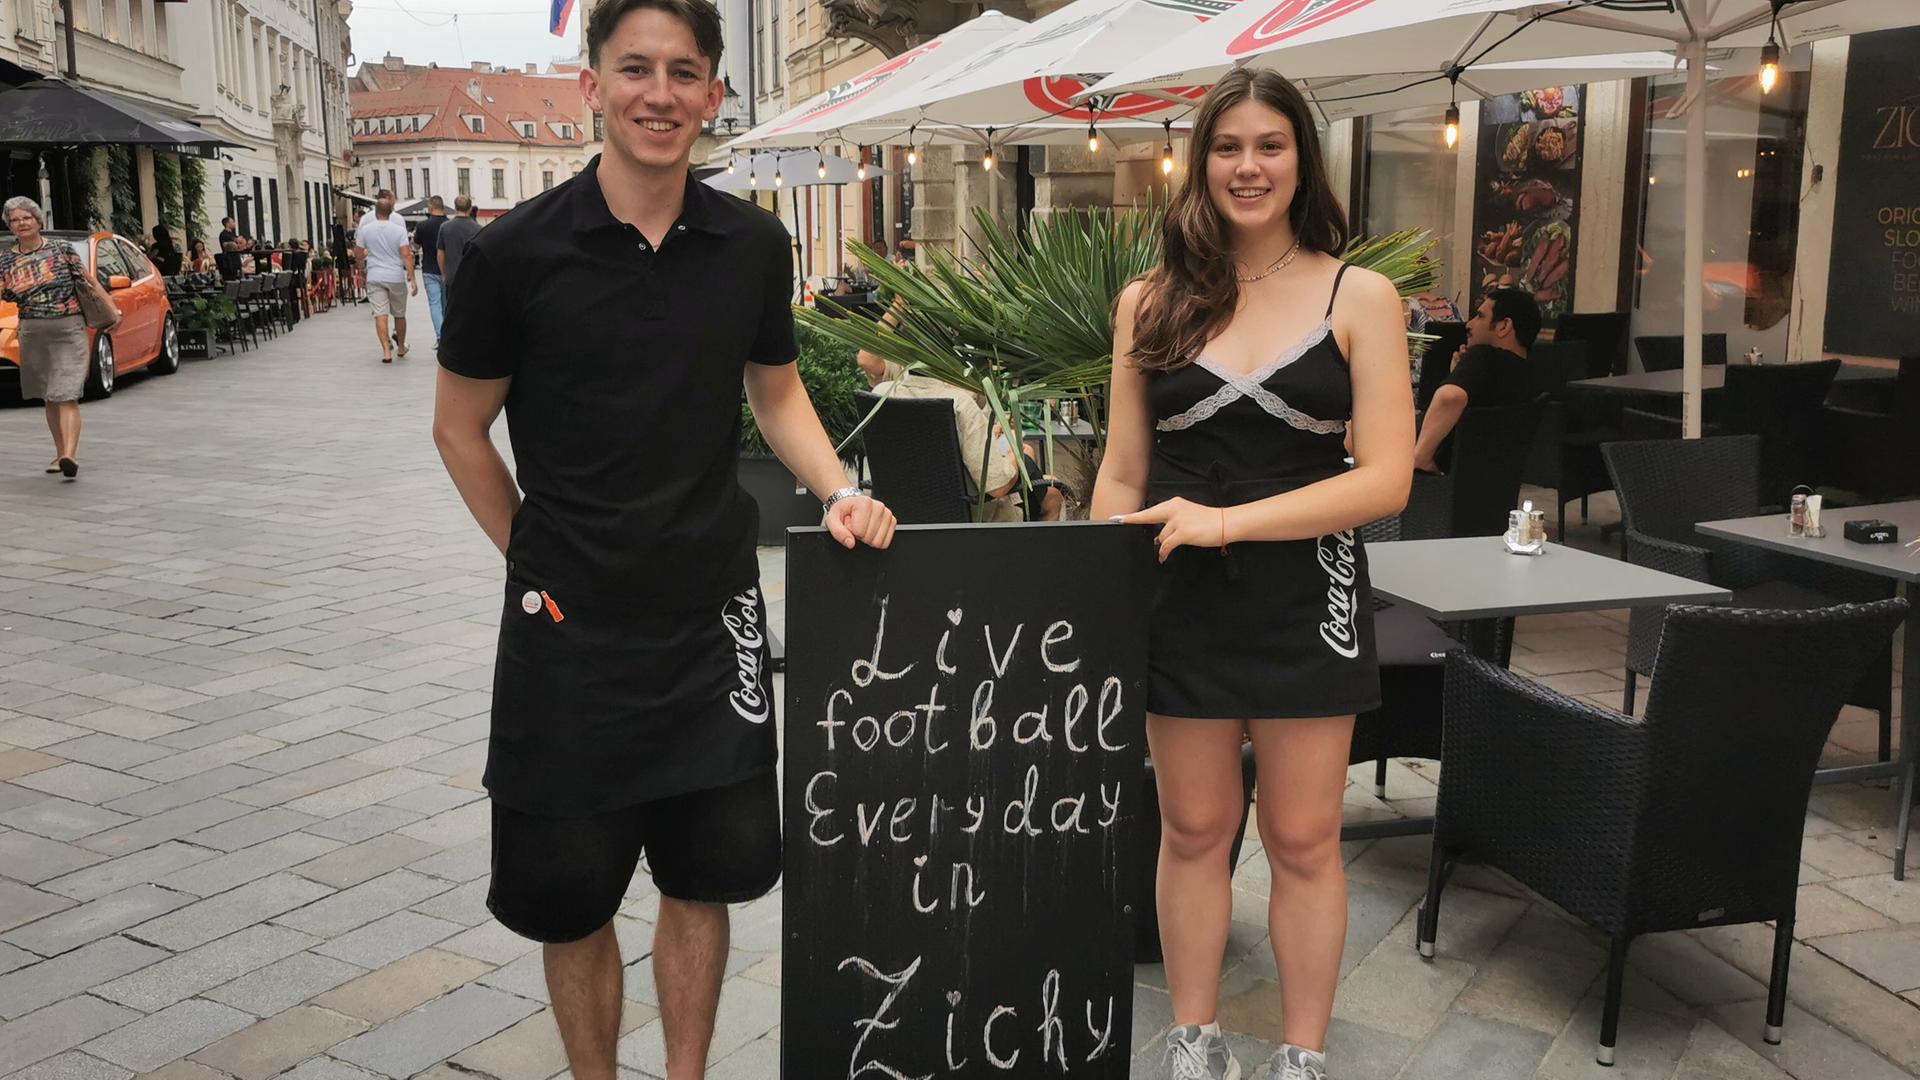 Live
football
Everyday
in
Zichy
Coca-Cola
Coca-Cola
KINLEY
ZIC
ORIG
SLO
FO
BE
WIN